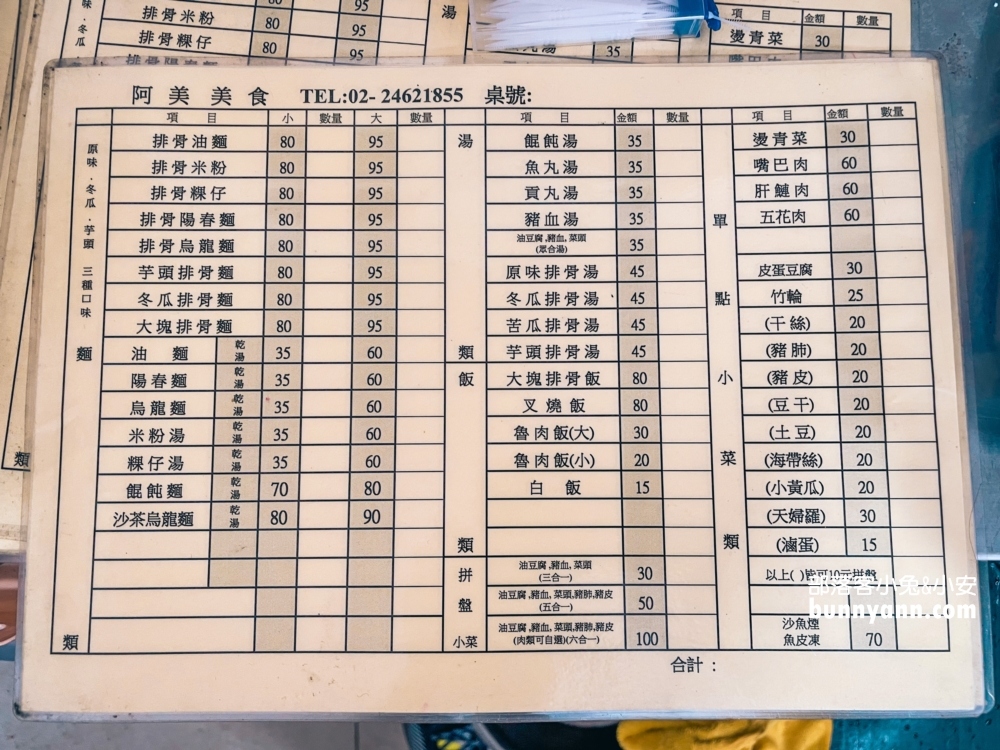 排骨米粉 80 95 湯
排骨粿仔 80 95
項 目 金額 數量
燙青菜 30
35
類
阿美美食 TEL:02-24621855 桌號:
項 目 小 數量 大 數量 項 目 金額 數量 項 目 金額 數量
原味.冬瓜.芋頭 三種口味
麵
類
排骨油麵 80 95
排骨米粉 80 95
排骨粿仔 80 95
排骨陽春麵 80 95
排骨烏龍麵 80 95
芋頭排骨麵 80 95
冬瓜排骨麵 80 95
大塊排骨麵 80 95
油 麵 乾湯 35 60
陽春麵 乾湯 35 60
烏龍麵 乾湯 35 60
米粉湯 乾湯 35 60
粿仔湯 乾湯 35 60
餛飩麵 乾湯 70 80
沙茶烏龍麵 乾湯 80 90
湯
類
餛飩湯 35
魚丸湯 35
貢丸湯 35
豬血湯 35
油豆腐,豬血,菜頭
(眾合湯) 35
原味排骨湯 45
冬瓜排骨湯 45
苦瓜排骨湯 45
芋頭排骨湯 45
飯
類
大塊排骨飯 80
叉燒飯 80
魯肉飯(大) 30
魯肉飯(小) 20
白 飯 15
拼
盤
小菜
油豆腐,豬血,菜頭
(三合一) 30
油豆腐,豬血,菜頭,豬肺,豬皮
(五合一) 50
油豆腐,豬血,菜頭,豬肺,豬皮
(肉類可自選)(六合一) 100
單
點
小
菜
類
燙青菜 30
嘴巴肉 60
肝鏈肉 60
五花肉 60
皮蛋豆腐 30
竹輪 25
(干絲) 20
(豬肺) 20
(豬皮) 20
(豆干) 20
(土豆) 20
(海帶絲) 20
(小黃瓜) 20
(天婦羅) 30
(滷蛋) 15
以上( )皆可10元拼盤
沙魚煙
魚皮凍 70
合計：
部落客小兔&小安
bunnyann.com